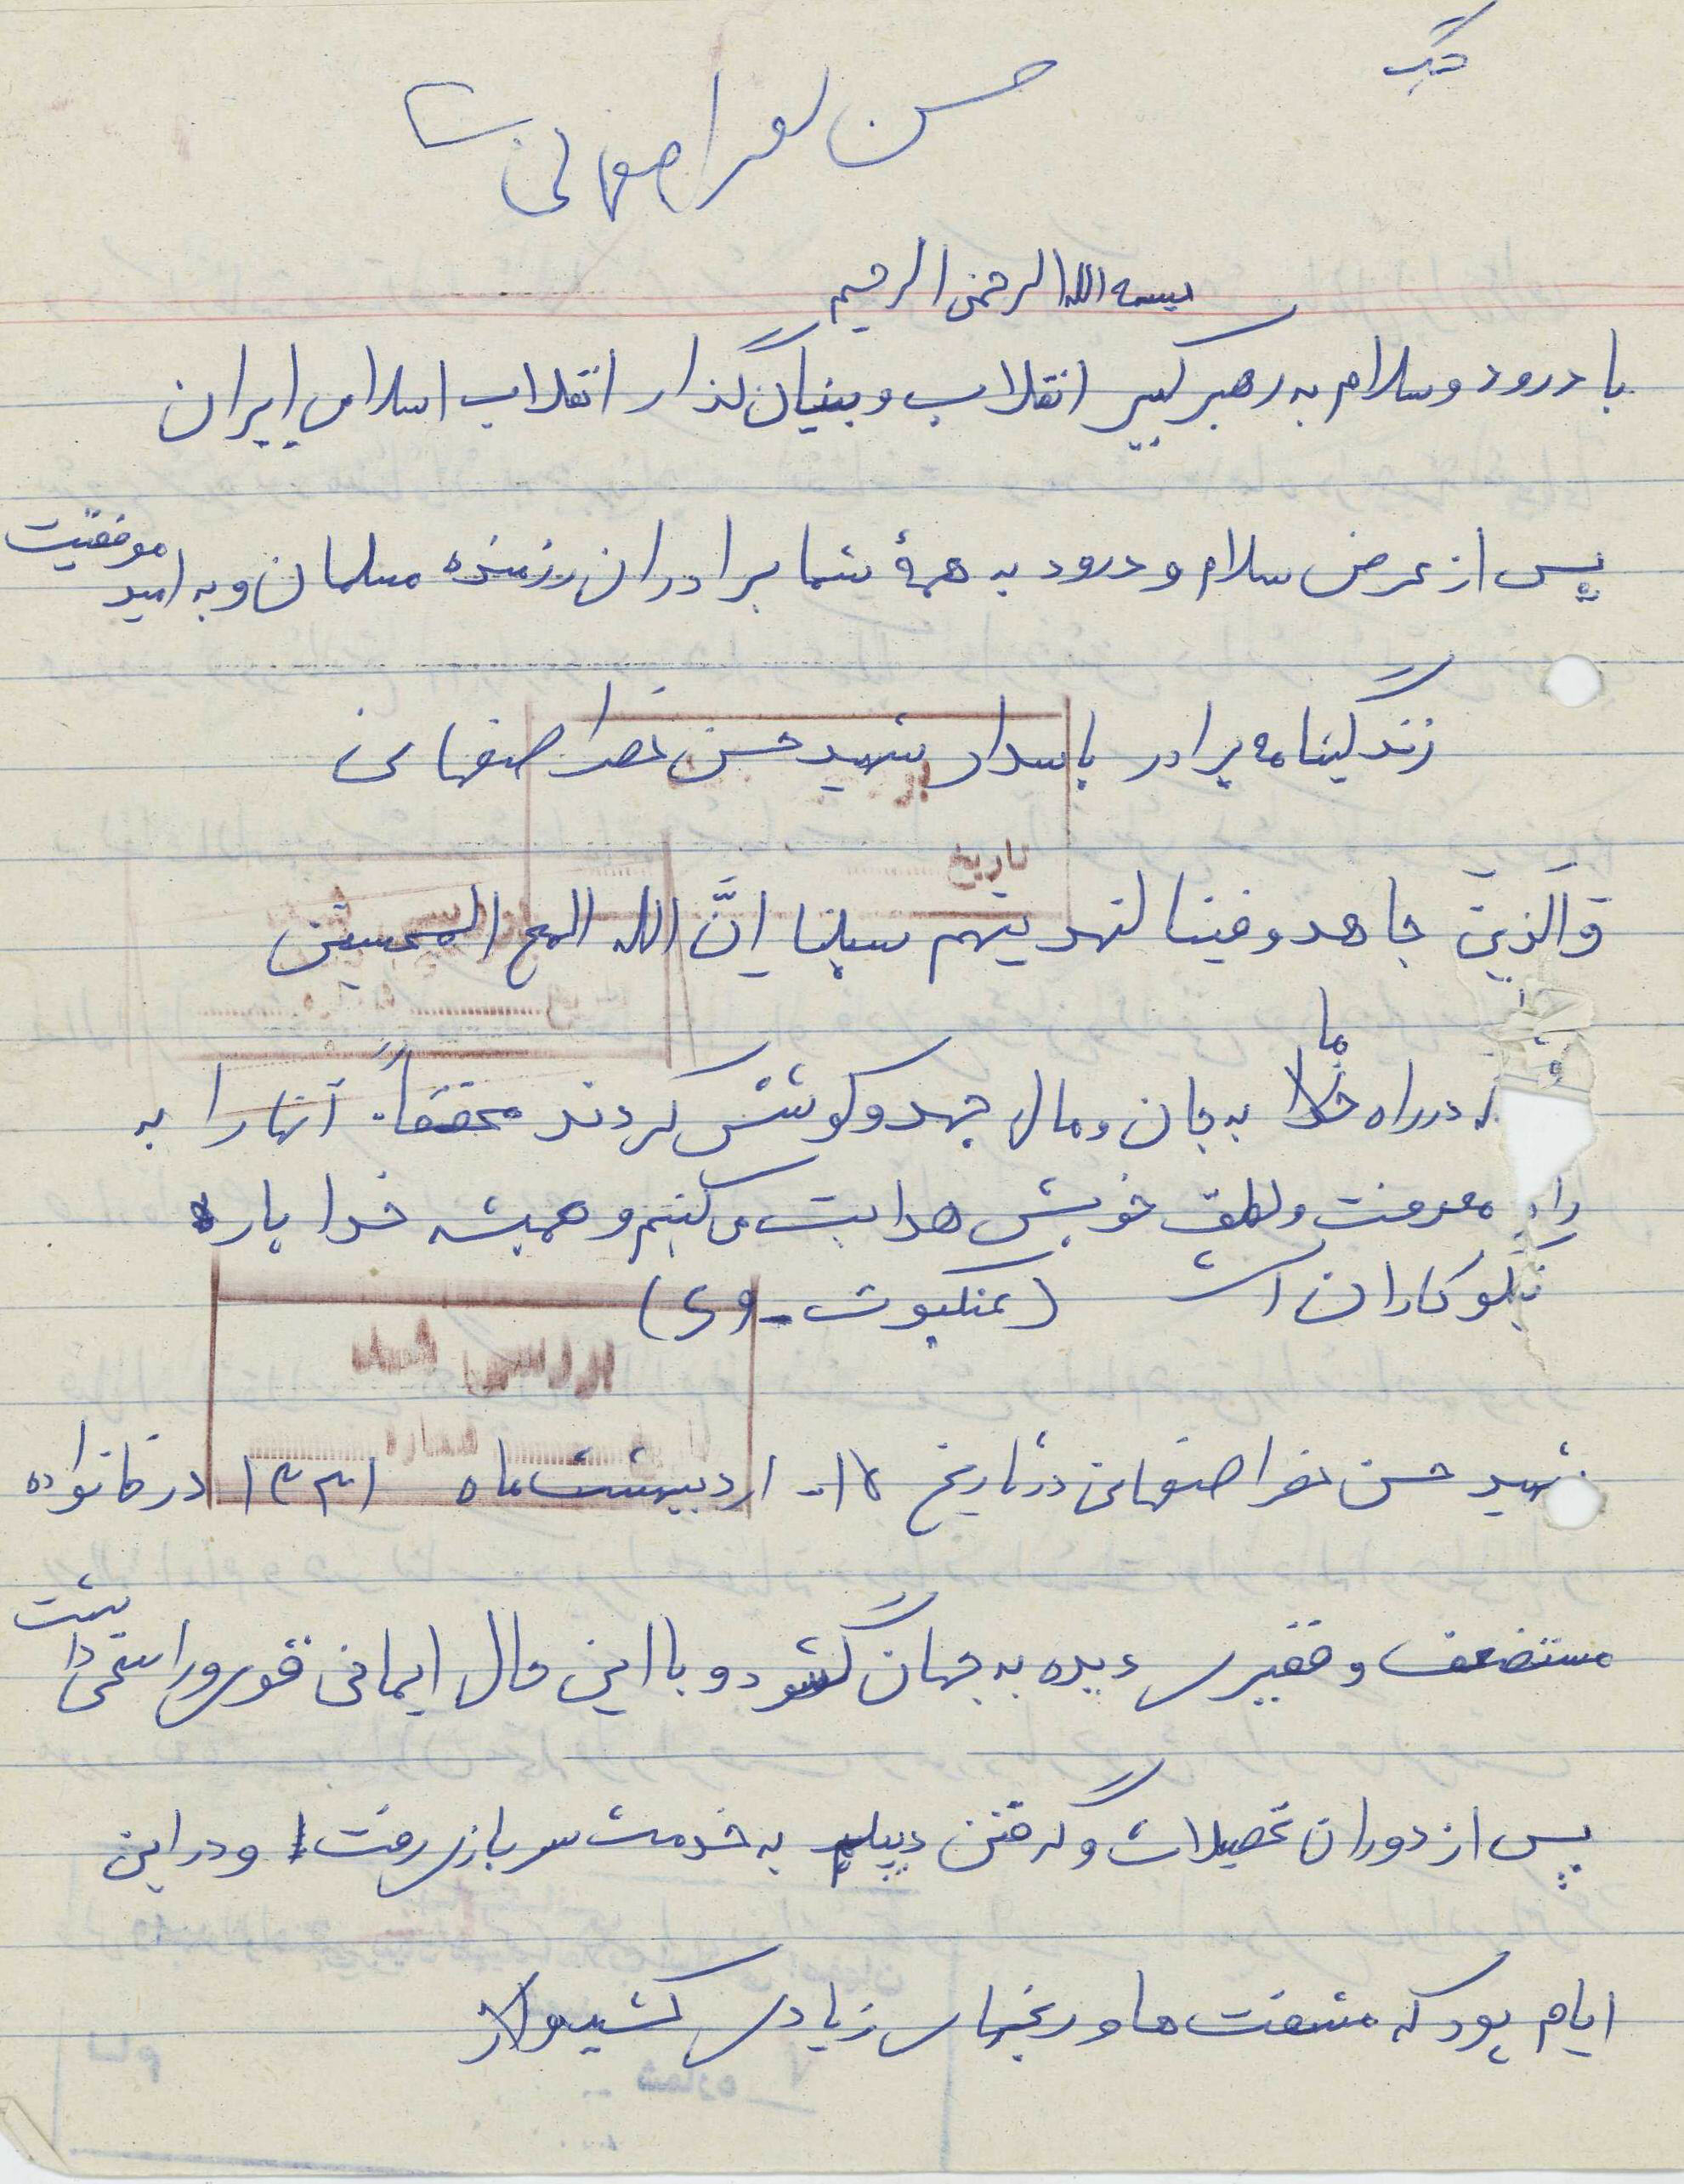 حسن نصراصفهانی
بسمه الله الرحمن الرحیم
با درود و سلام به رهبر کبیر انقلاب و بنیان گذار انقلاب اسلامی ایران
پس از عرض سلام و درود به همهٔ شما برادران رزمنده مسلمان و به امید موفقیت
زندگینامه برادر پاسدار شهید حسن نصراصفهانی
تاریخ
والَّذینَ جاهدو فینا لنهدینهم سبلنا اِنَّ الله المع المحسنین
که در راه ما به جان و مال جهد و کوشش کردند محققاً آنها را به
راه معرفت و لطف خویش هدایت می کنیم و همیشه خدا یار
نیکوکاران است (عنکبوت - ٦٩)
بررسی شد
شماره
شهید حسن نصراصفهانی در تاریخ اردیبهشت ماه ۱۳۳۱ در خانواده
مستضعف و فقیری دیده به جهان گشود و با این حال ایمانی قوی و راسخی داشت
پس از دوران تحصیلات و گرفتن دیپلم به خدمت سربازی رفت و در این
ایام بود که مشقت ها و رنجهای زیادی کشید و از